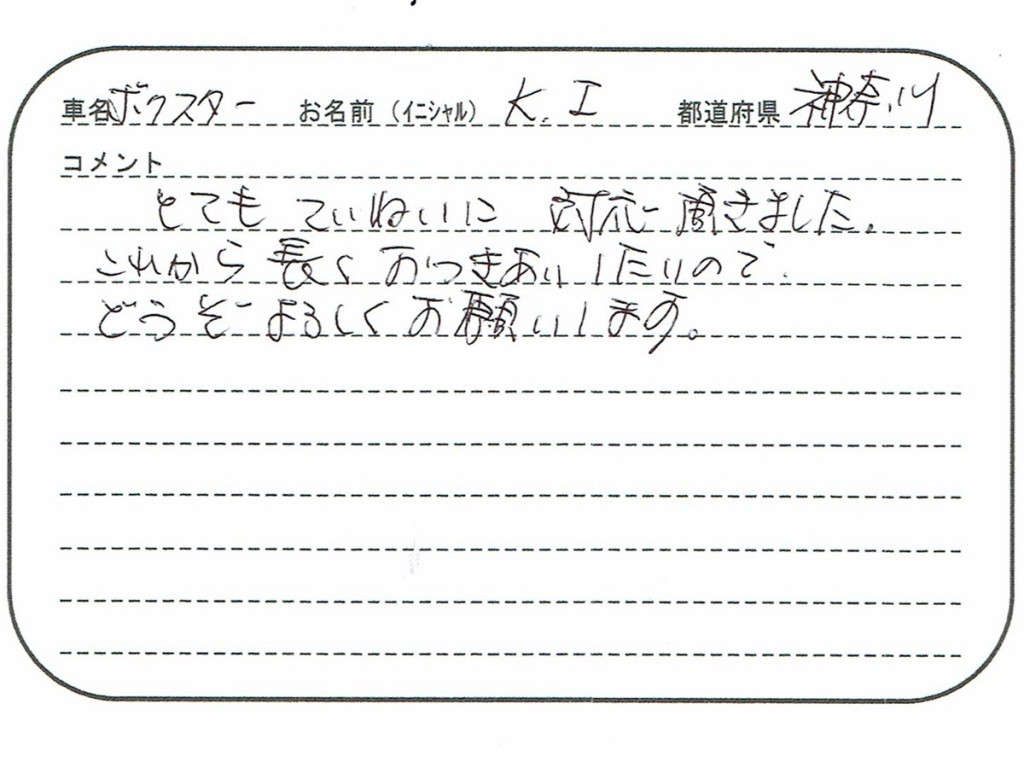 車名 ボクスター お名前（イニシャル） K.I 都道府県 神奈川
コメント
とても ていねいに 対応 頂きました。
これから 長く おつきあい したいので、
どうぞ よろしく お願いします。